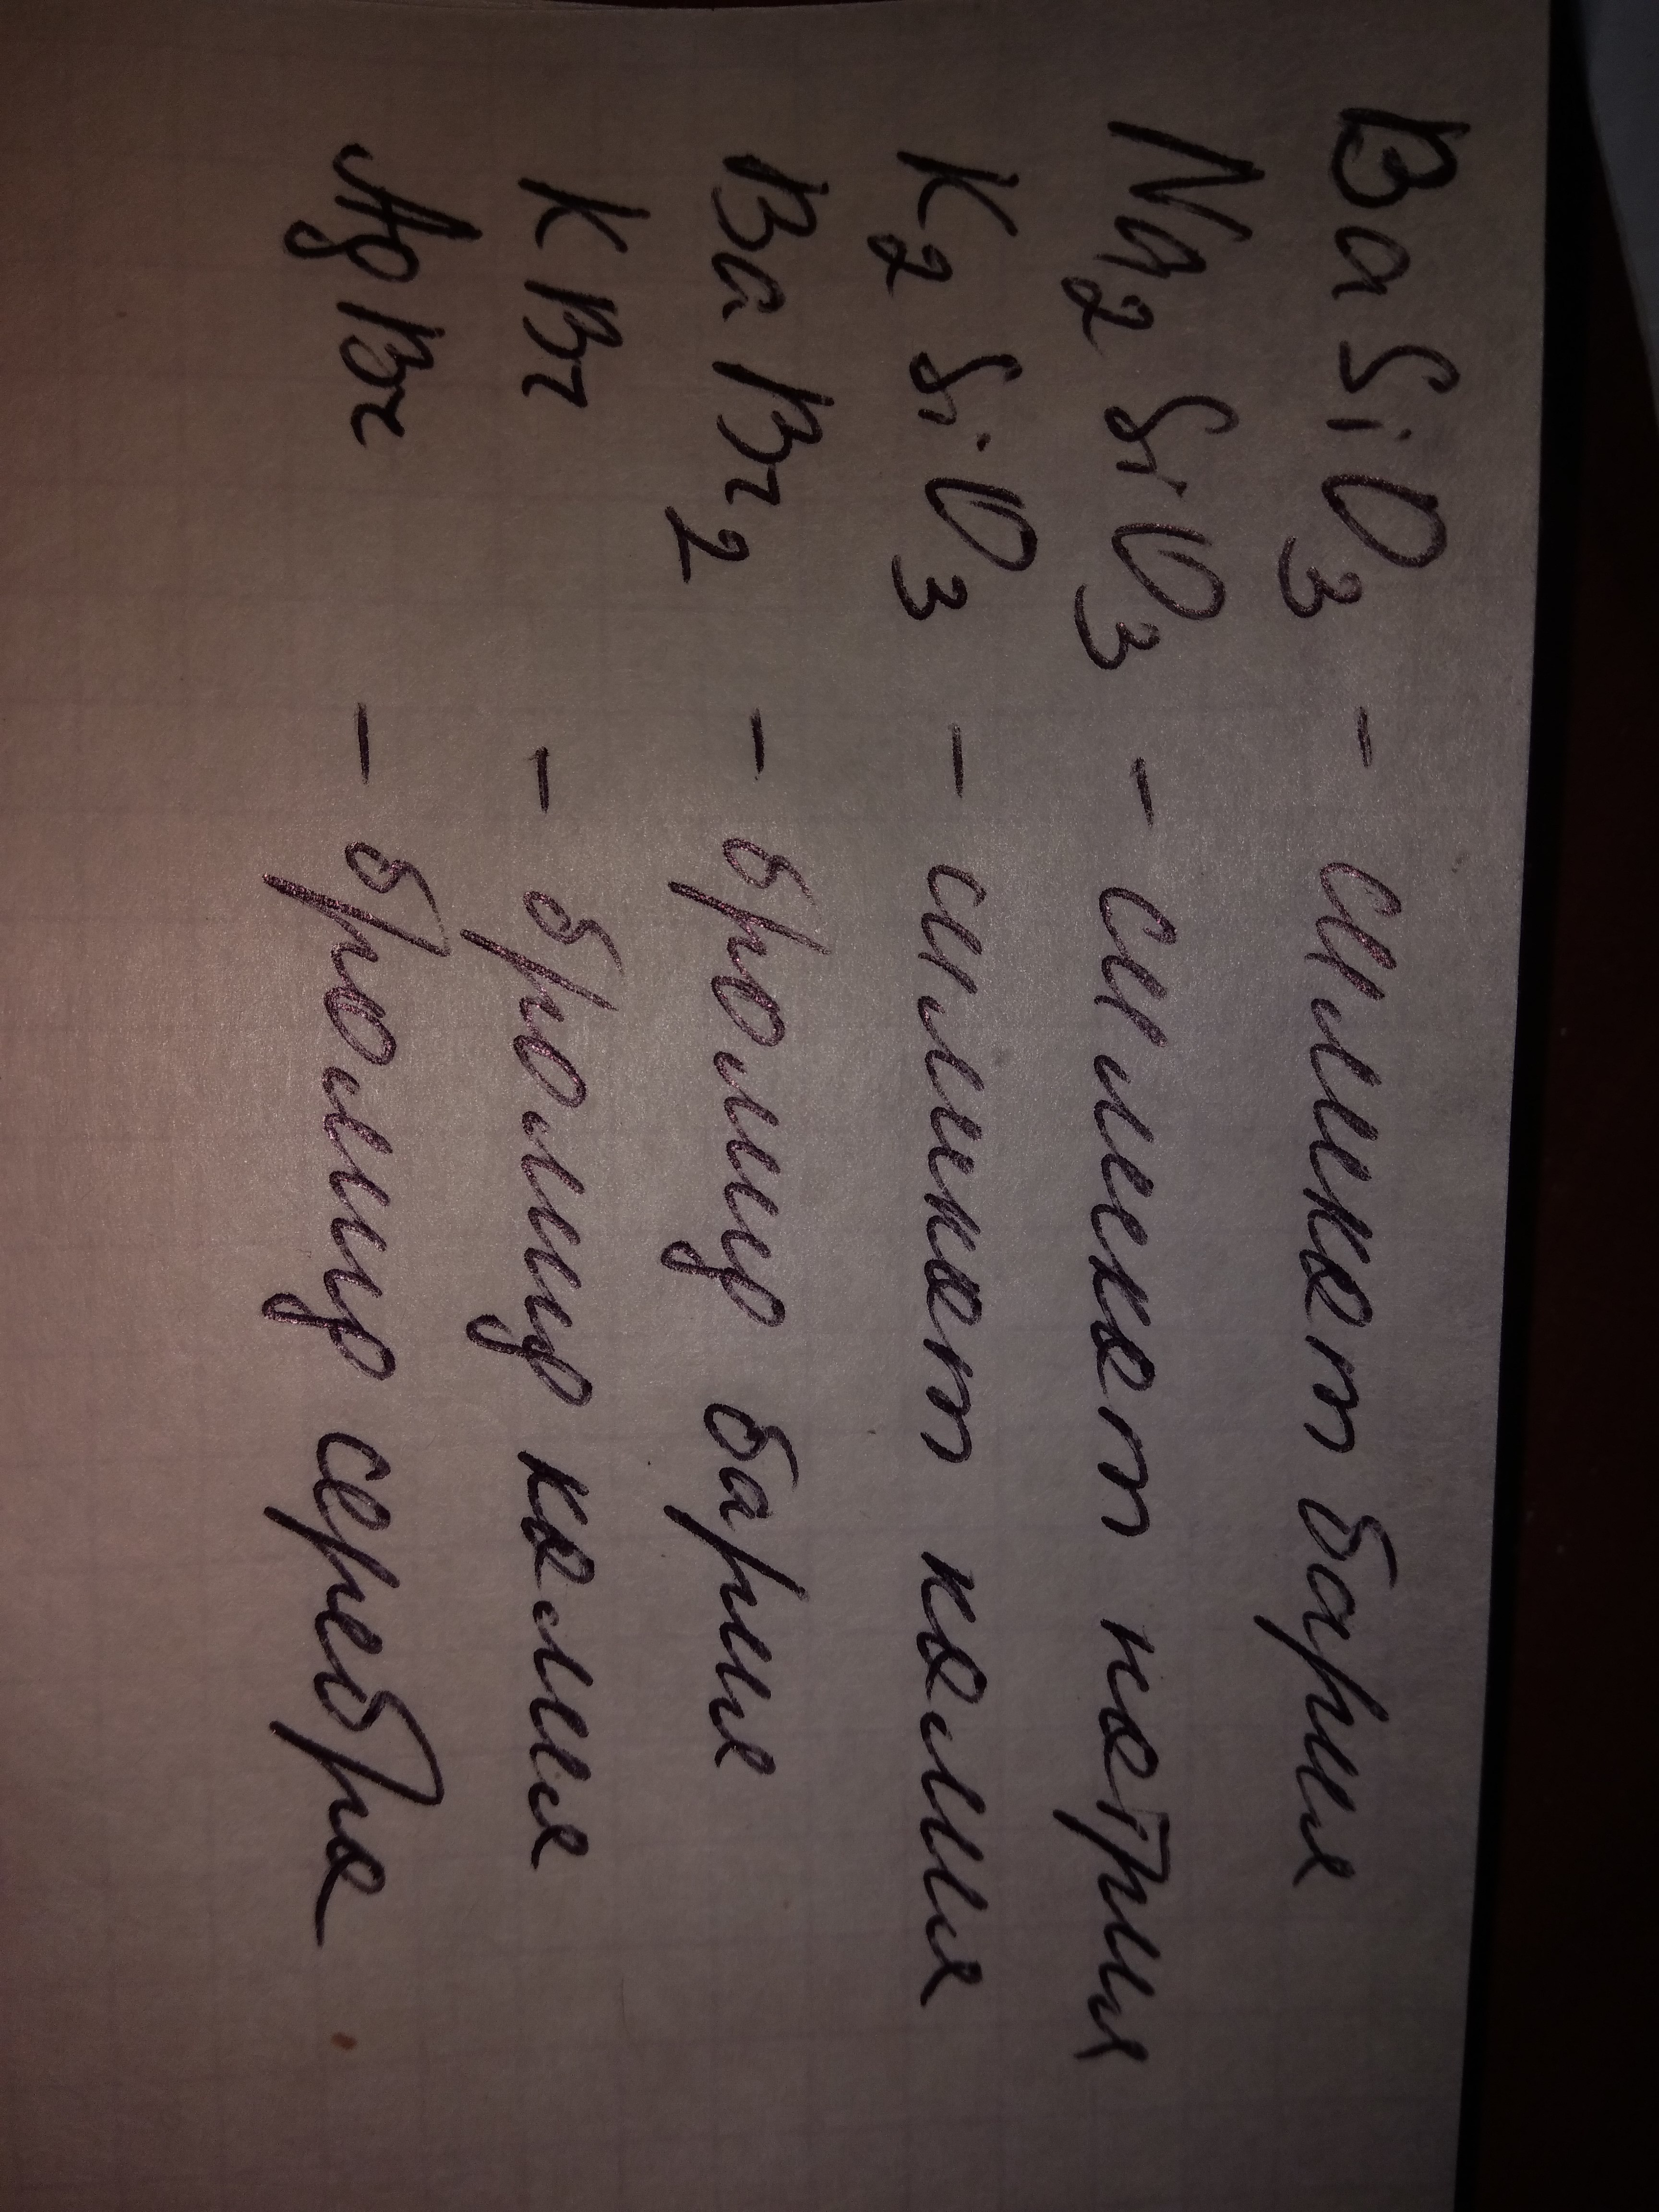 BaSiO3 - силикат бария
Na2SiO3 - силикат натрия
K2SiO3 - силикат калия
BaBr2 - бромид бария
KBr - бромид калия
AgBr - бромид серебра